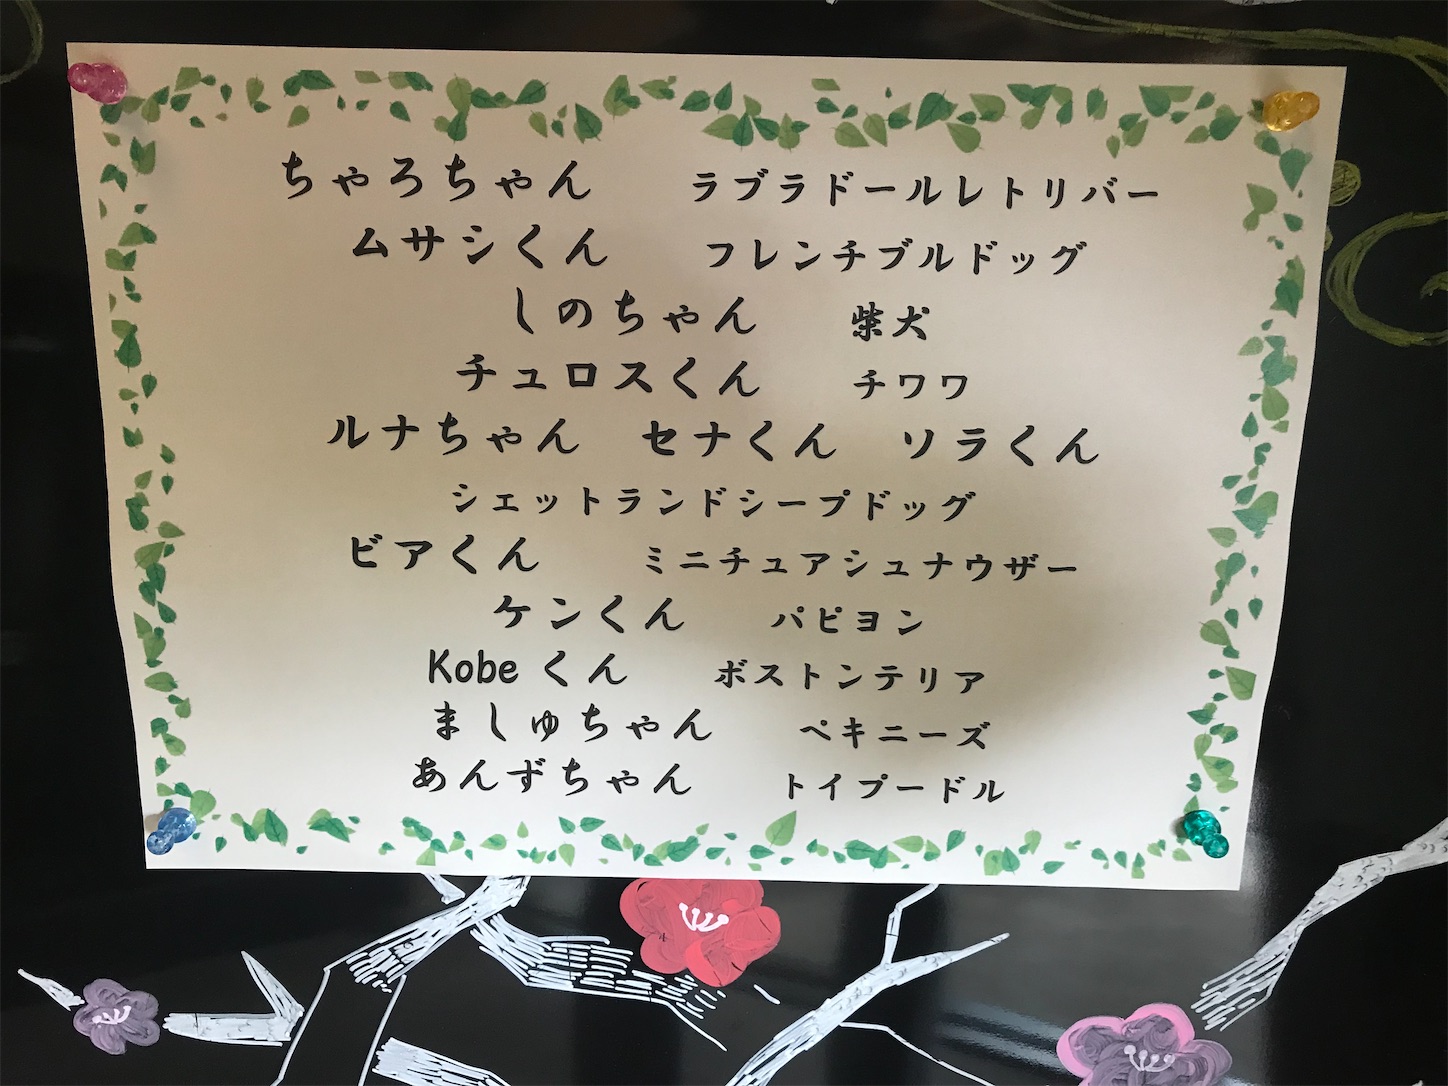 ちゃろちゃん　ラブラドールレトリバー
ムサシくん　フレンチブルドッグ
しのちゃん　柴犬
チュロスくん　チワワ
ルナちゃん　セナくん　ソラくん
シェットランドシープドッグ
ビアくん　ミニチュアシュナウザー
ケンくん　パピヨン
Kobeくん　ボストンテリア
ましゅちゃん　ペキニーズ
あんずちゃん　トイプードル